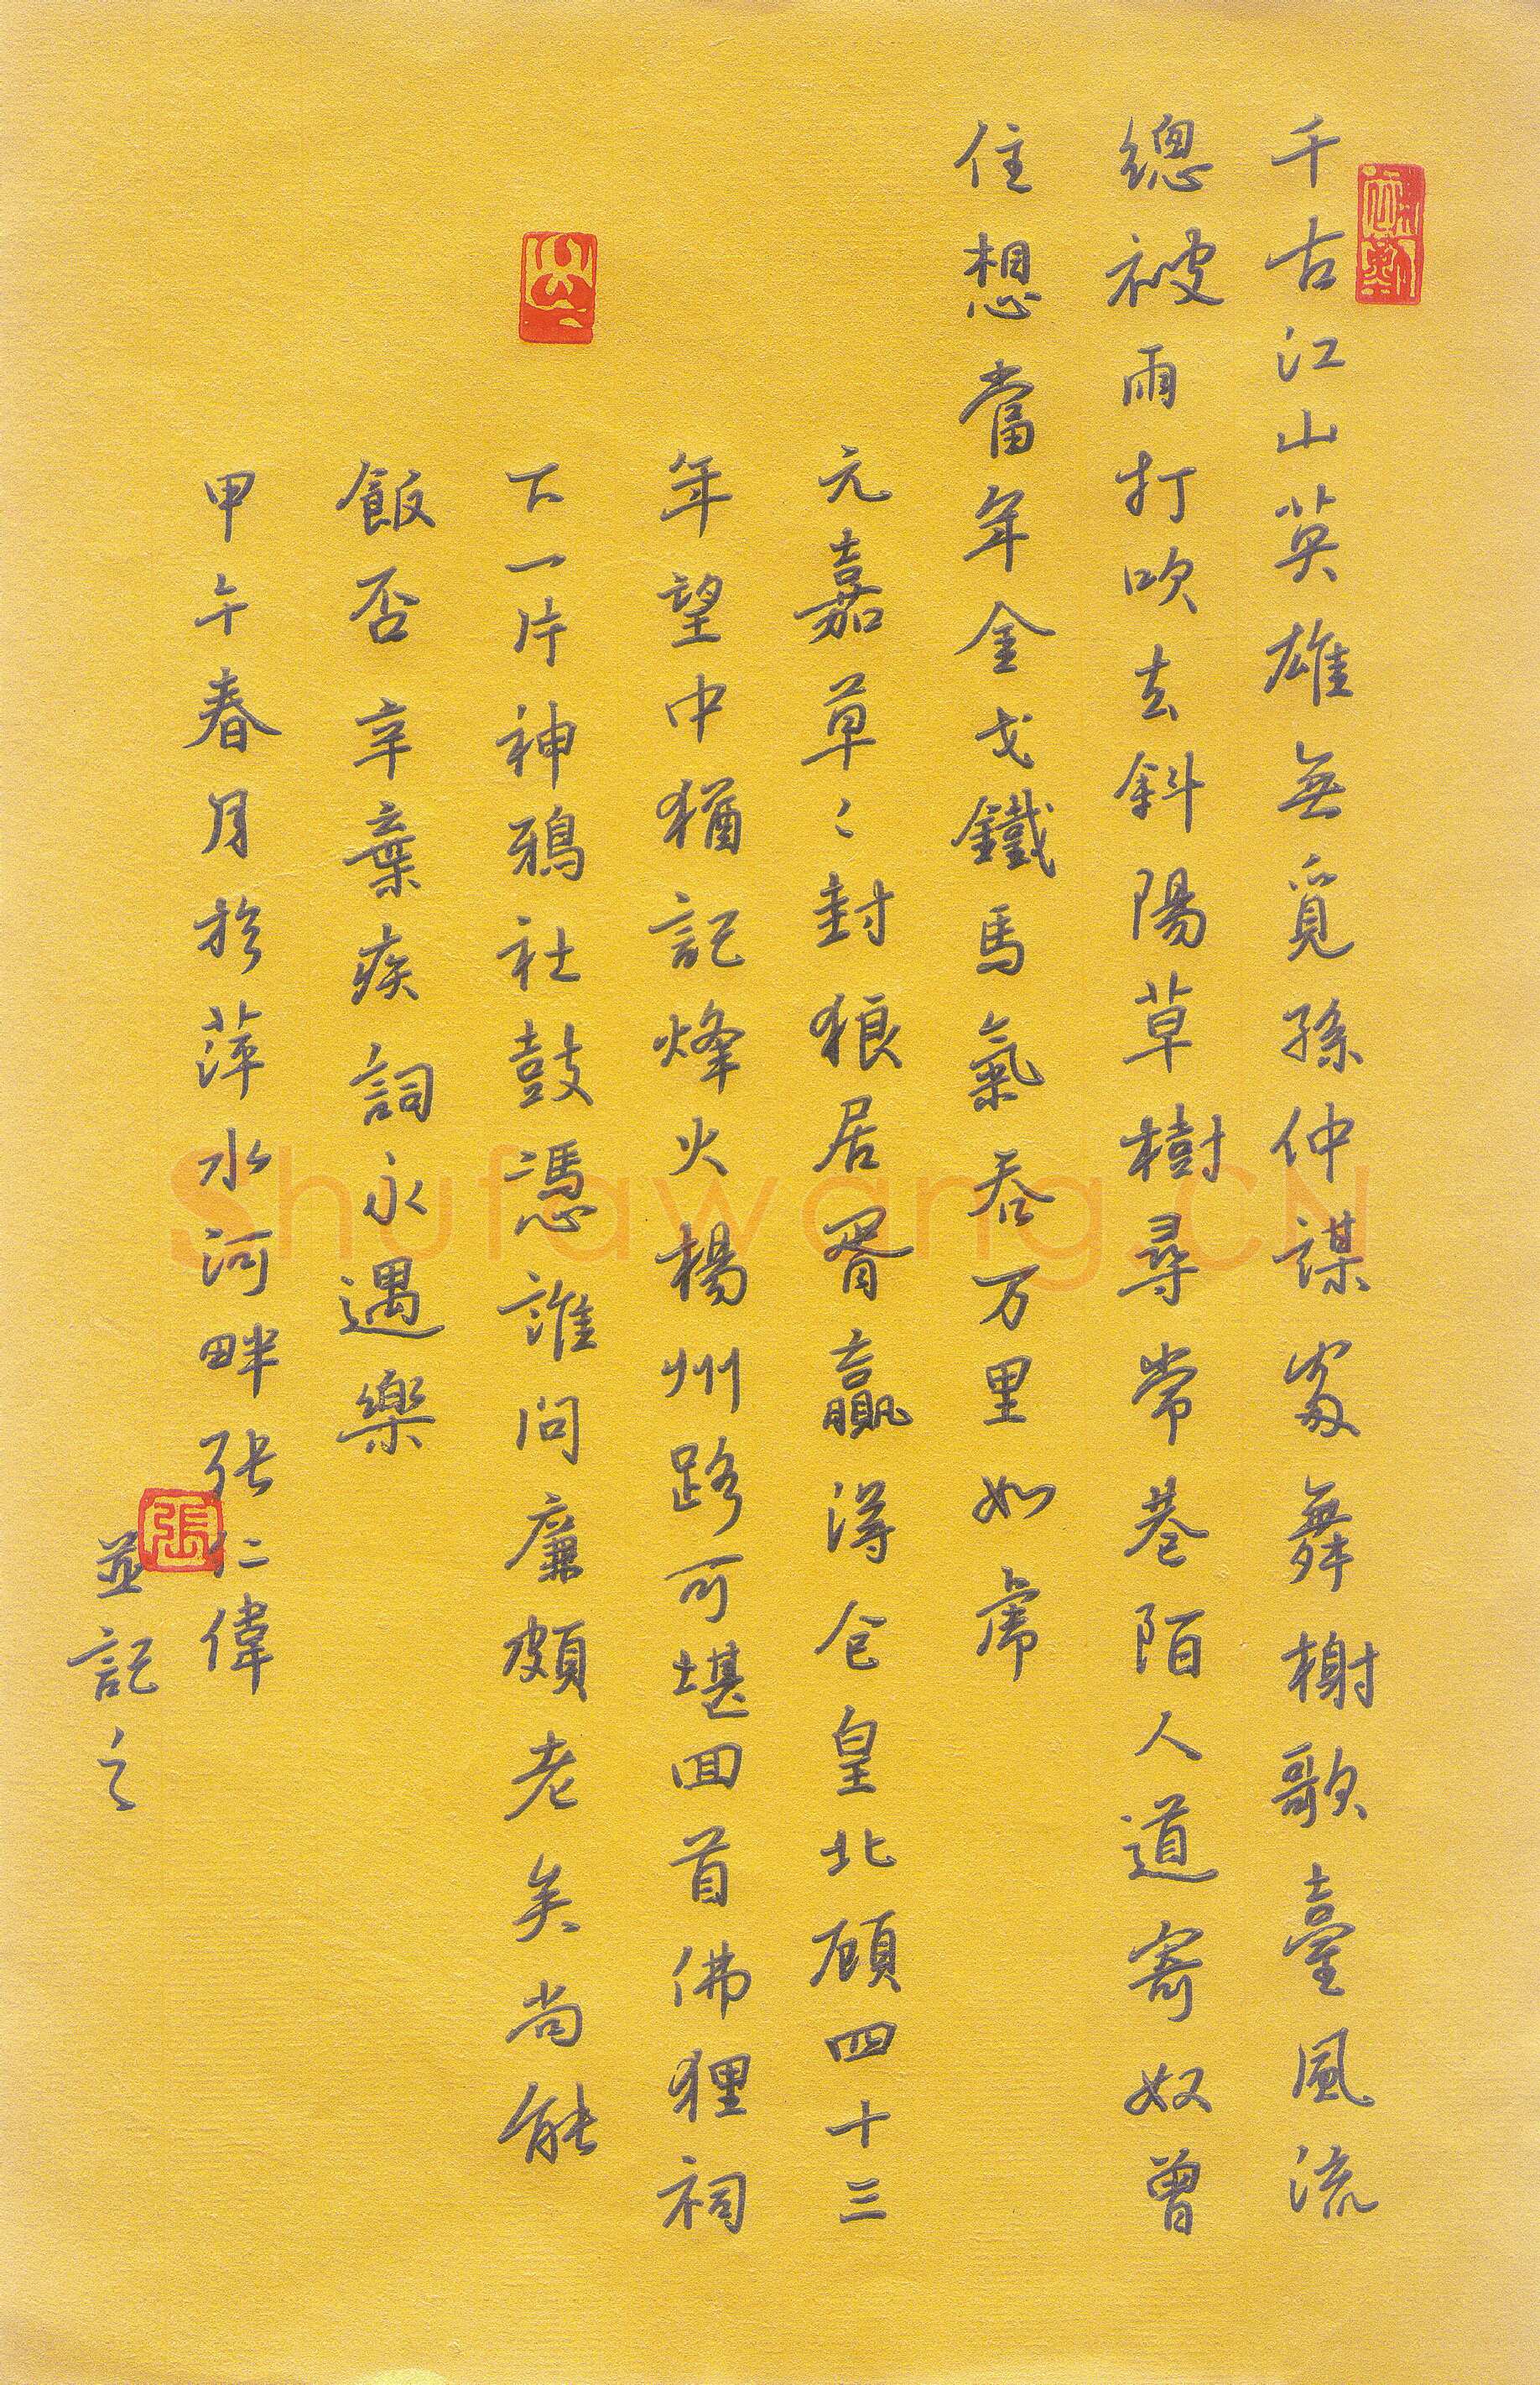 千古江山英雄無覓孫仲謀處舞榭歌臺風流
總被雨打吹去斜陽草樹尋常巷陌人道寄奴曾
住想當年金戈鐵馬氣吞万里如虎
元嘉草〻封狼居胥贏得仓皇北顧四十三
年望中猶記烽火楊州路可堪回首佛狸祠
下一片神鴉社鼓憑誰問廉頗老矣尚能
飯否辛棄疾詞永遇樂
甲午春月於萍水河畔張仁偉
並記之
張
Shufawang.CN